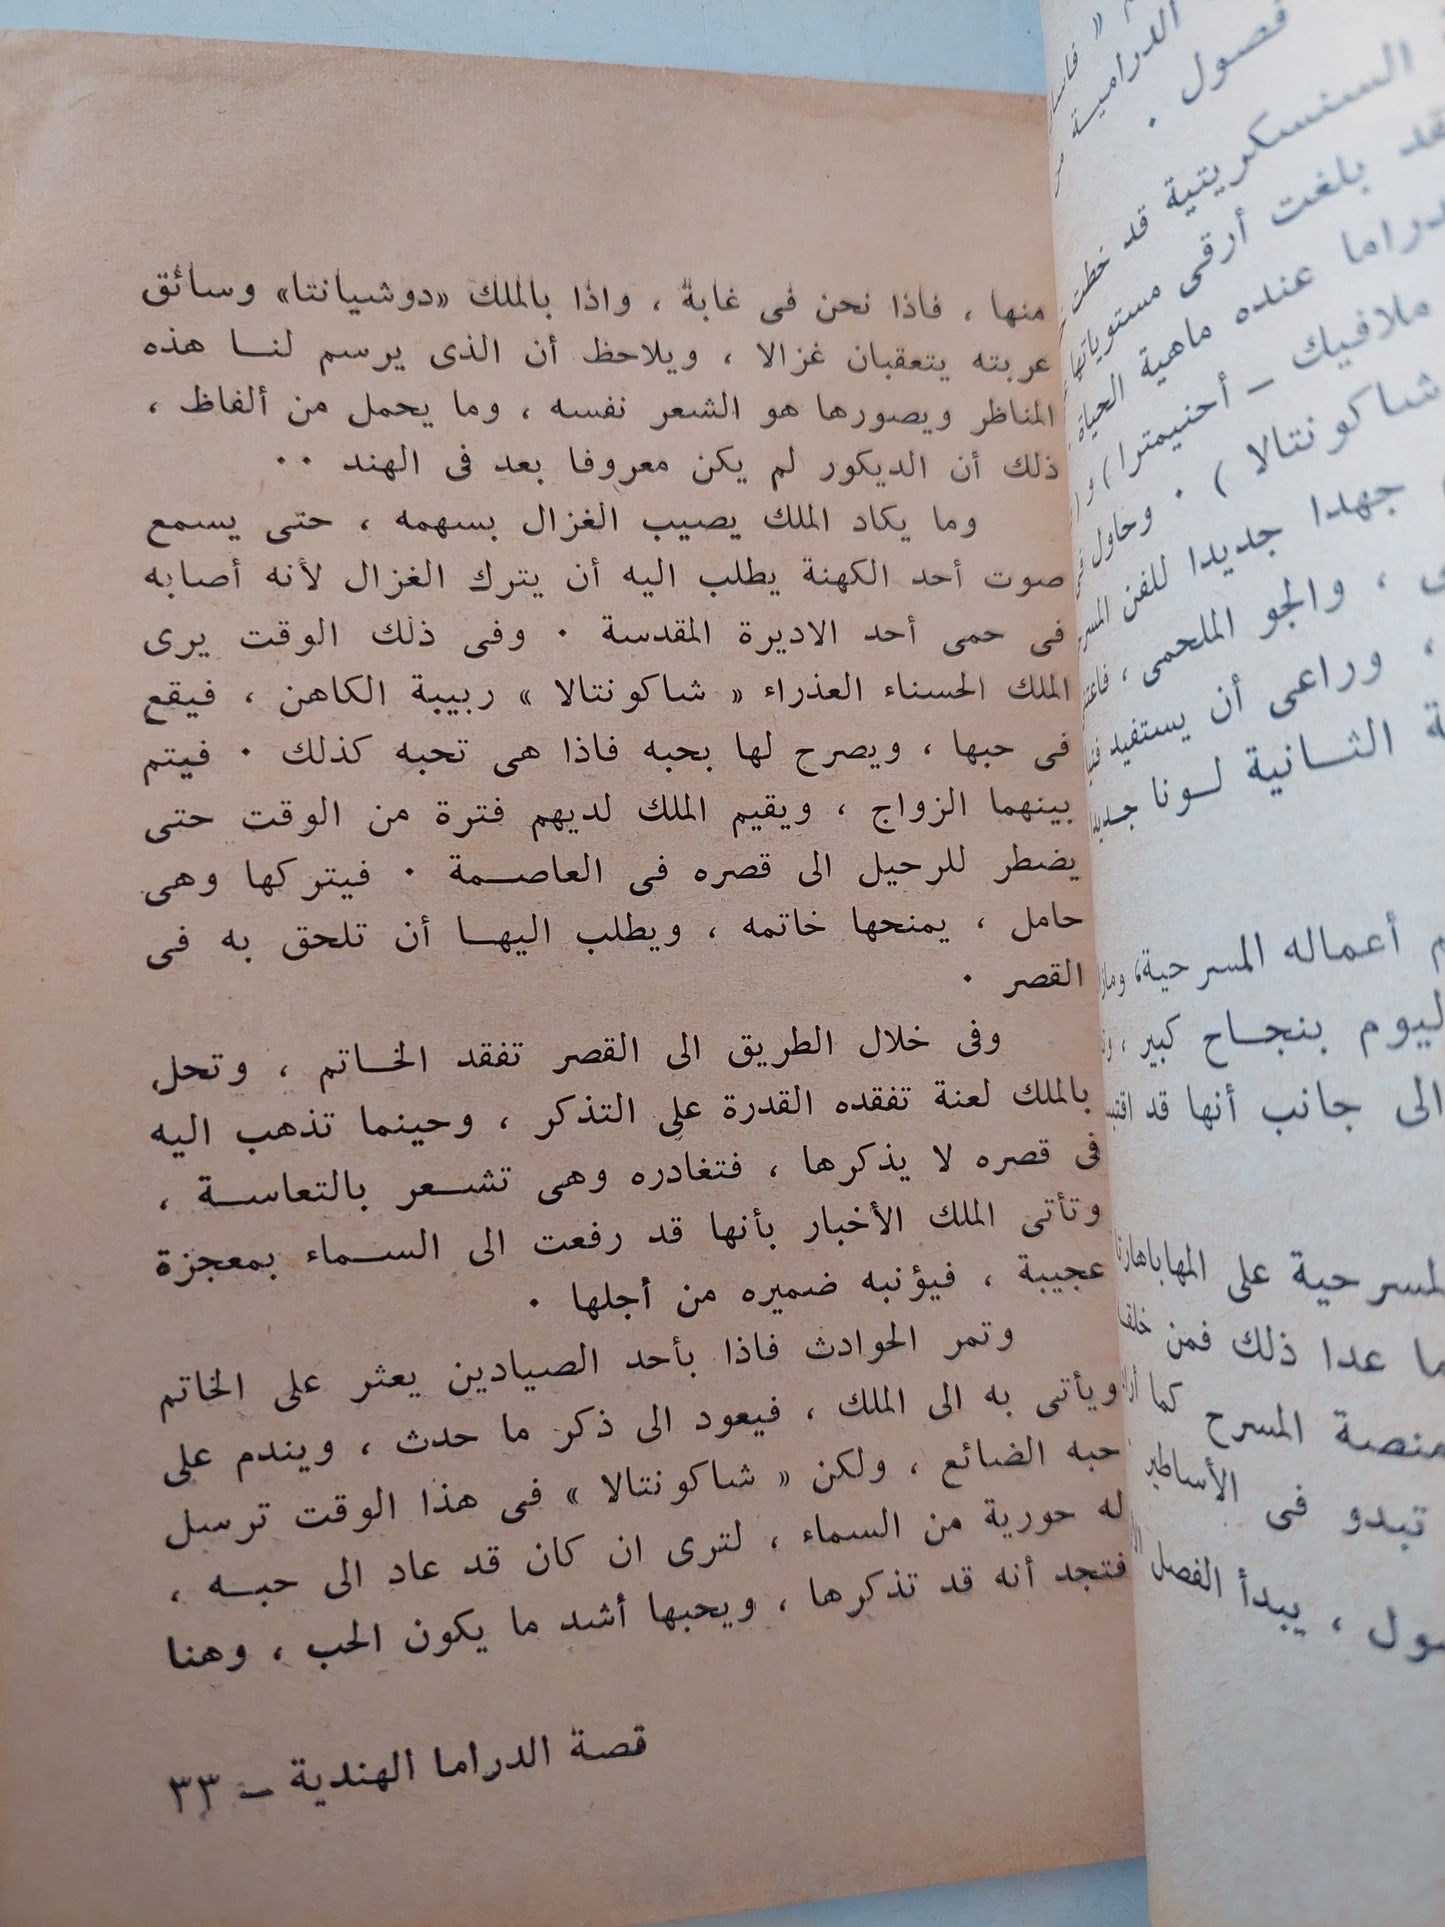 منها ، فاذا نحن فى غابة ، واذا بالملك «دوشيانتا» وسائق
عربته يتعقبان غزالا ، ويلاحظ أن الذى يرسم لنـا هذه
المناظر ويصورها هو الشعر نفسه ، وما يحمل من ألفاظ ،
ذلك أن الديكور لم يكن معروفا بعد فى الهند ٠٠
وما يكاد الملك يصيب الغزال بسهمه ، حتى يسمع
صوت أحد الكهنة يطلب اليه أن يترك الغزال لأنه أصابه
فى حمى أحد الاديرة المقدسة ٠ وفى ذلك الوقت يرى
الملك الحسناء العذراء « شاكونتالا » ربيبة الكاهن ، فيقع
فى حبها ، ويصرح لها بحبه فاذا هى تحبه كذلك ٠ فيتم
بينهما الزواج ، ويقيم الملك لديهم فترة من الوقت حتى
يضطر للرحيل الى قصره فى العاصـمة ٠ فيتركها وهى
حامل ، يمنحها خاتمه ، ويطلب اليهـا أن تلحق به فى
القصر ٠
وفى خلال الطريق الى القصر تفقد الخـاتم ، وتحل
بالملك لعنة تفقده القدرة على التذكر ، وحينما تذهب اليه
فى قصره لا يذكرها ، فتغادره وهى تشـعر بالتعاسـة ،
وتأتى الملك الأخبار بأنها قد رفعت الى السـماء بمعجزة
عجيبة ، فيؤنبه ضميره من أجلها ٠
وتمر الحوادث فاذا بأحد الصيادين يعثر على الخاتم
ويأتى به الى الملك ، فيعود الى ذكر ما حدث ، ويندم على
حبه الضائع ، ولكن « شاكونتالا » فى هذا الوقت ترسل
له حورية من السماء ، لترى ان كان قد عاد الى حبـه ،
فتجد أنه قد تذكرها ، ويحبها أشد ما يكون الحب ، وهنا
قصة الدراما الهندية – ٣٣
الدرامية
فصول ٠
السنسكريتية قد خطت
بلغت أرقى مستوياتها
عنده ماهية الحياة
ملافيك – أحنيمترا ) و (
شاكونتالا ) ٠ وحاول
جهدا جديدا للفن
، والجو الملحمى ،
، وراعى أن يستفيد
الثـانية لـونا
أعماله المسرحية،
بنجـاح كبير ،
الى جانب أنها قد
على المهاباهارتا
عدا ذلك فمن
المسرح كما
تبدو فى الأساطير
، يبدأ الفصل